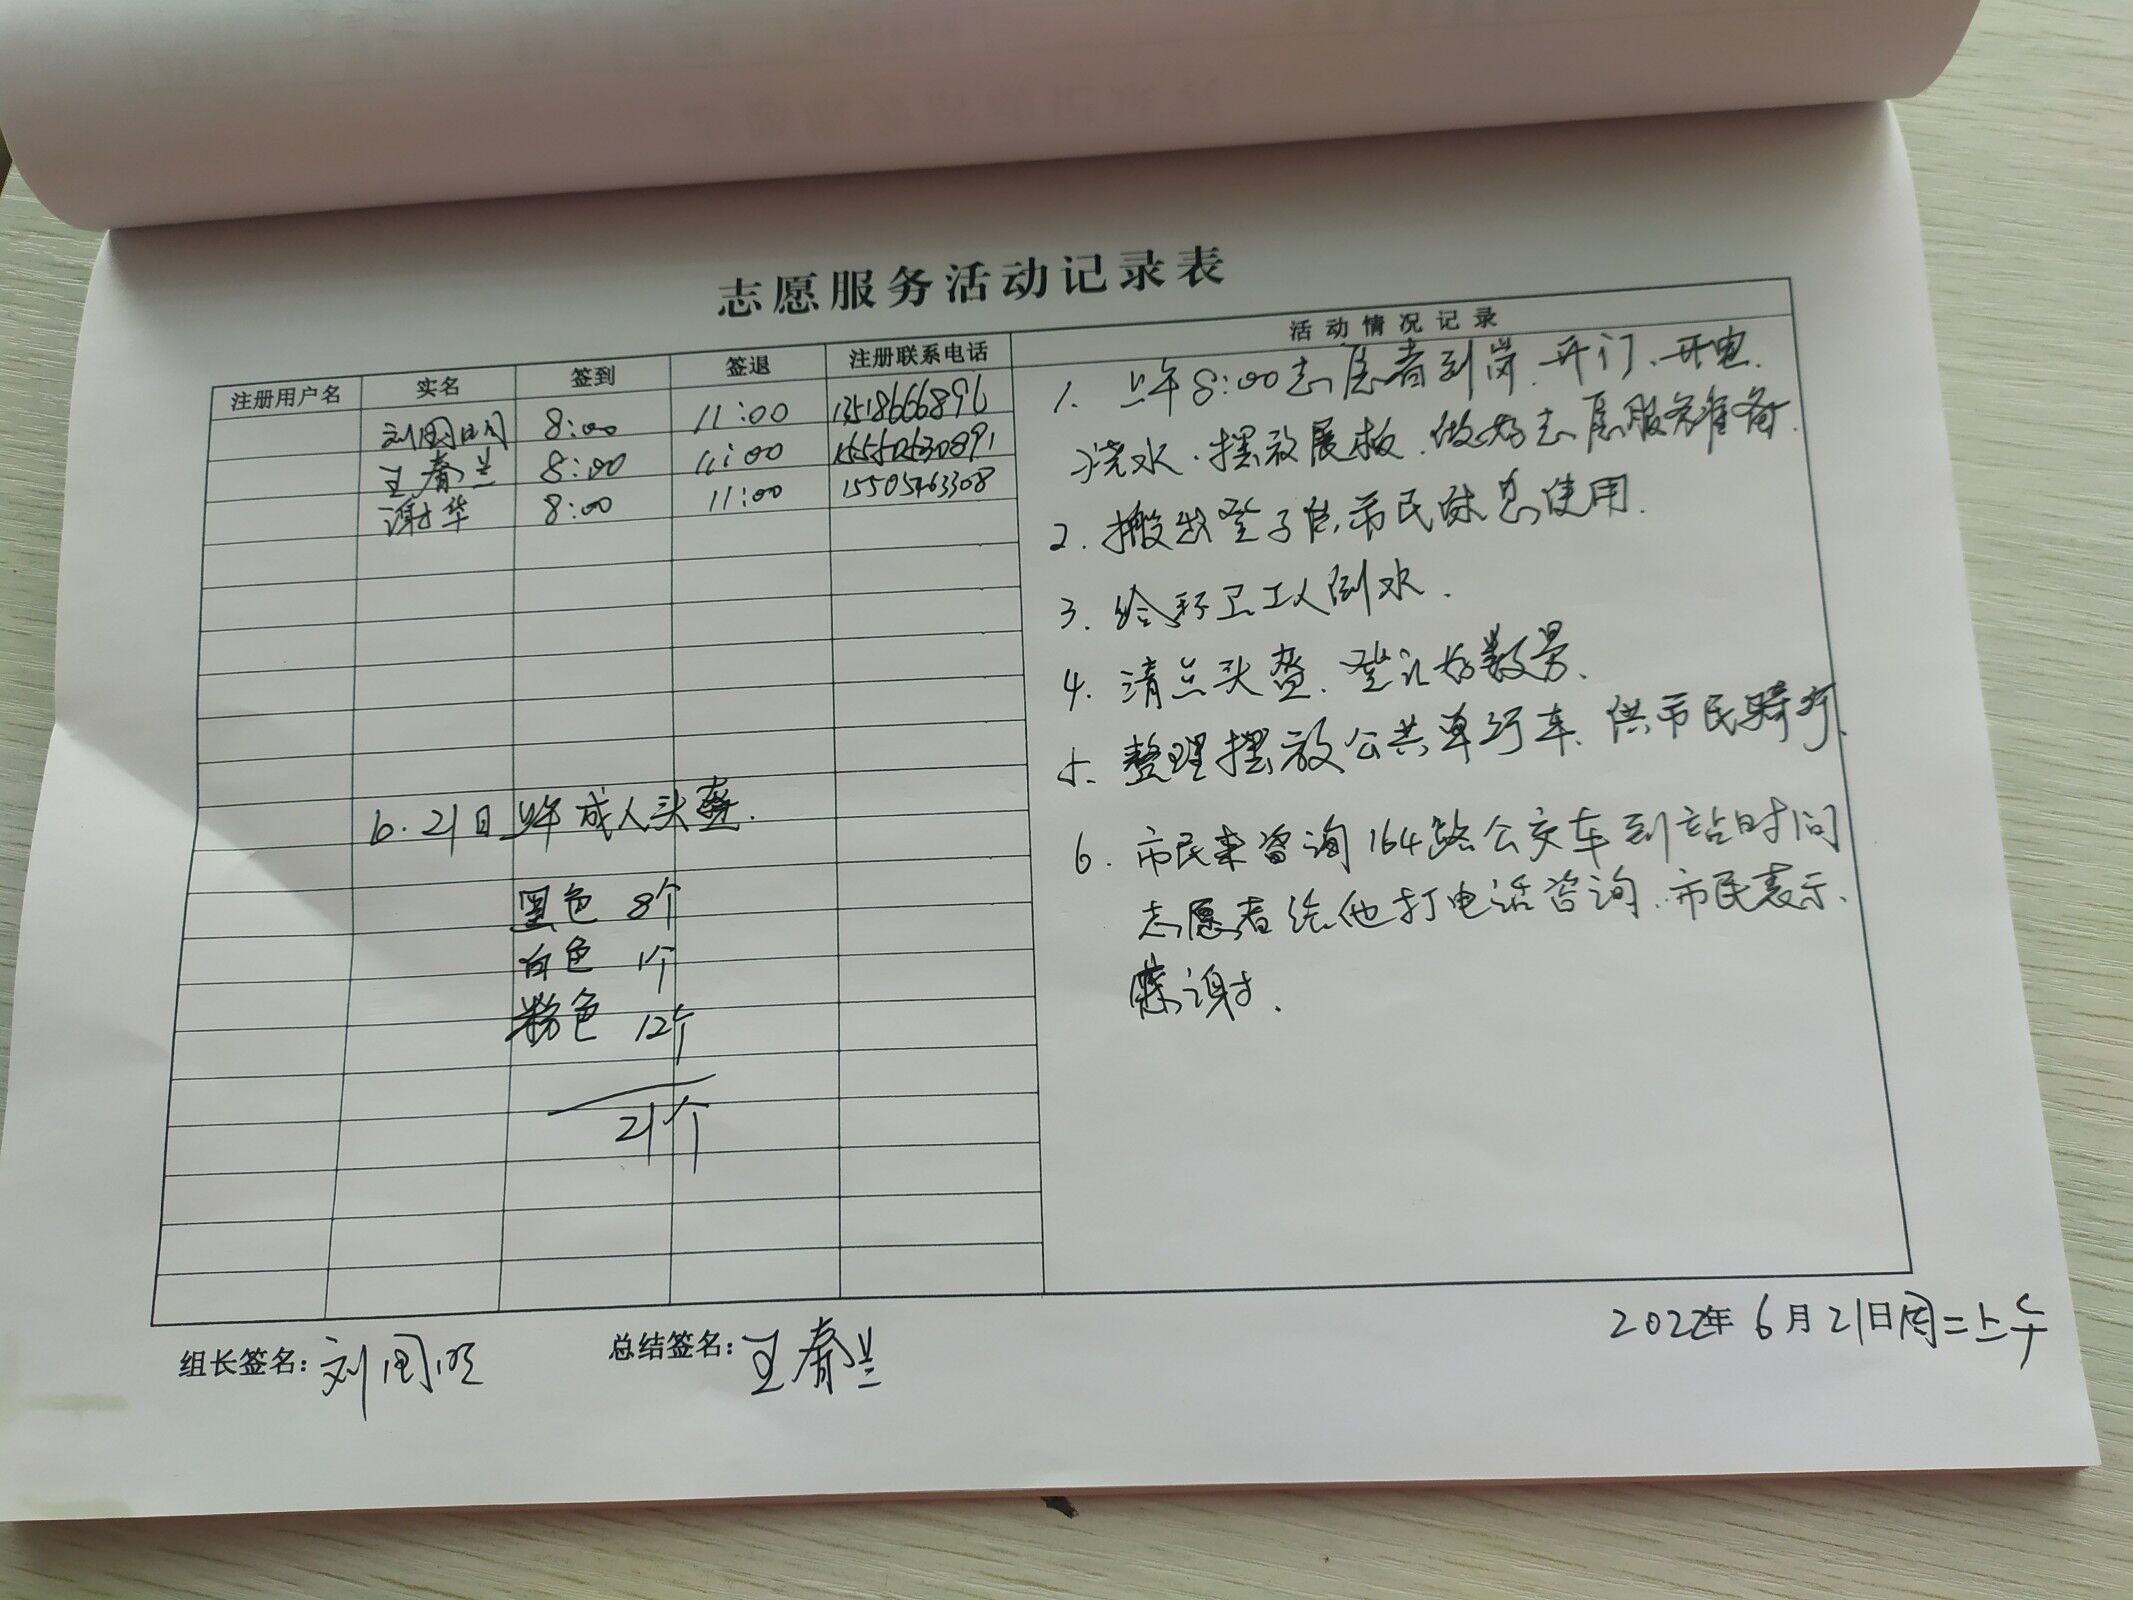 志愿服务活动记录表
注册用户名 实名 签到 签退 注册联系电话 活动情况记录
刘国明 8:00 11:00 13518666896
王春兰 8:00 11:00 15550630891
谢华 8:00 11:00 15505463308
1. 上午8:00志愿者到岗、开门、开电、
浇水、摆放展板、做好志愿服务准备.
2. 搬出凳子供市民休息使用.
3. 给环卫工人倒水.
4. 清点头盔、登记好数量.
5. 整理摆放公共单行车、供市民骑行.
6. 市民来咨询164路公交车到站时间
志愿者给他打电话咨询、市民表示
感谢.
6.21日上午成人头盔.
黑色 8个
白色 1个
粉色 12个
21个
组长签名: 刘国明 总结签名: 王春兰
2022年6月21日周二上午